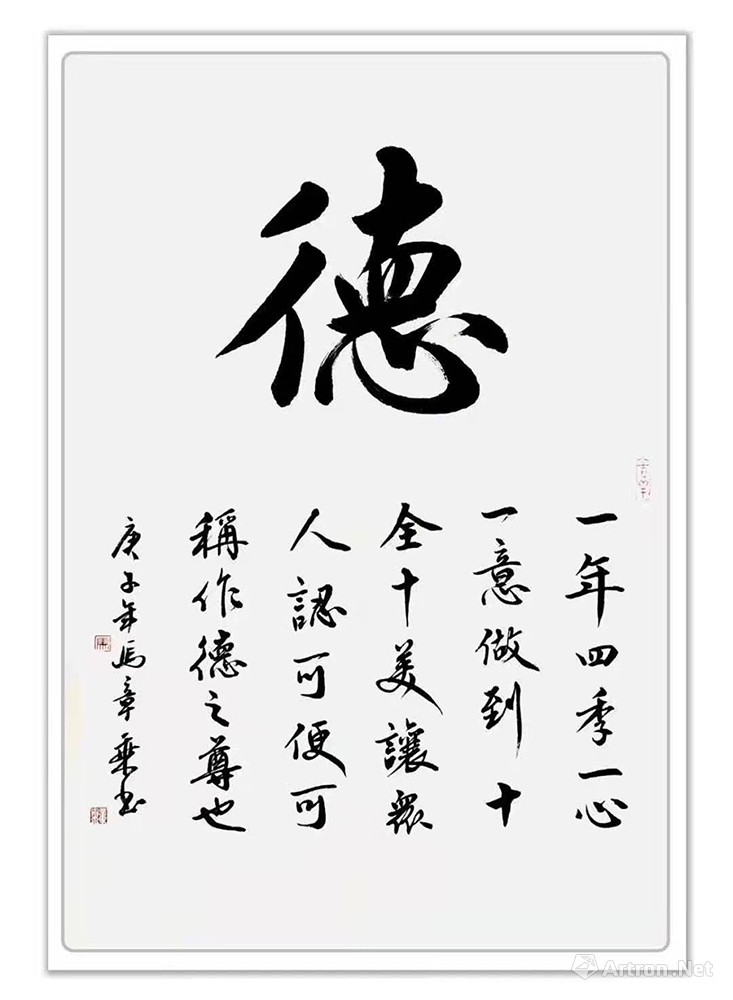 德
一年四季一心
一意做到十
全十美讓眾
人認可便可
稱作德之尊也
庚子年馬章乘书
Artron.Net